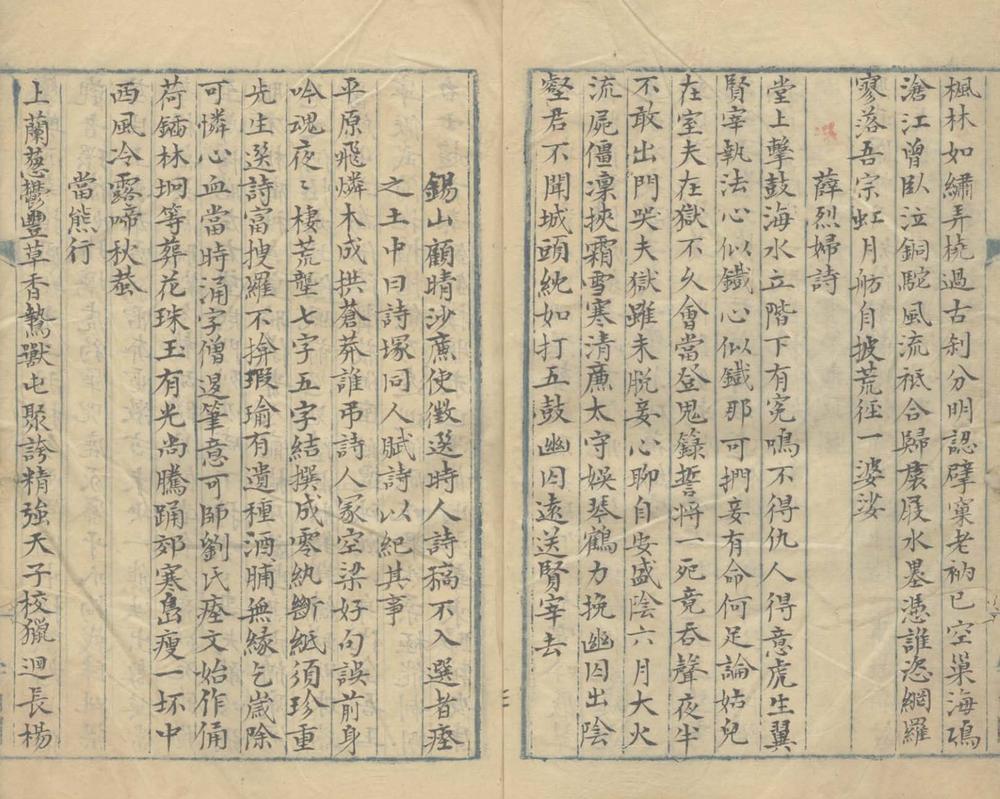 楓林如繡弄橈過古刹分明認擘窠老衲已空巢海鳮
滄江曾臥泣銅駝風流祗合歸裙屐水墨憑誰恣網羅
寥落吾宗虹月舫自披荒徑一婆娑
薛烈婦詩
堂上擊鼓海水立階下有冤鳴不得仇人得意虎生翼
賢宰執法心似鐵心似鐵那可捫妾有命何足論姑兒
在室夫在獄不久會當登鬼籙誓將一死竟吞聲夜半
不敢出門哭夫獄雖未脫妾心聊自安盛陰六月大火
流屍僵凜挾霜雪寒清廉太守娛琴鶴力挽幽囚出陰
壑君不聞城頭紞如打五鼓幽囚遠送賢宰去
錫山顧晴沙廉使徵選時人詩稿不入選者瘞
之土中曰詩塚同人賦詩以紀其事
平原飛燐木成拱蒼莽誰弔詩人冢空梁好句誤前身
吟魂夜〻棲荒壟七字五字結撰成零紈斷紙須珍重
先生選詩富搜羅不揜瑕瑜有遺種酒脯無緣乞歲除
可憐心血當時涌字僧退筆意可師劉氏瘞文始作俑
荷鍤林坰等葬花珠玉有光尚騰踊郊寒島瘦一坏中
西風冷露啼秋蛬
當熊行
上蘭蔥鬱豐草香騺獸屯聚誇精強天子校獵迴長楊